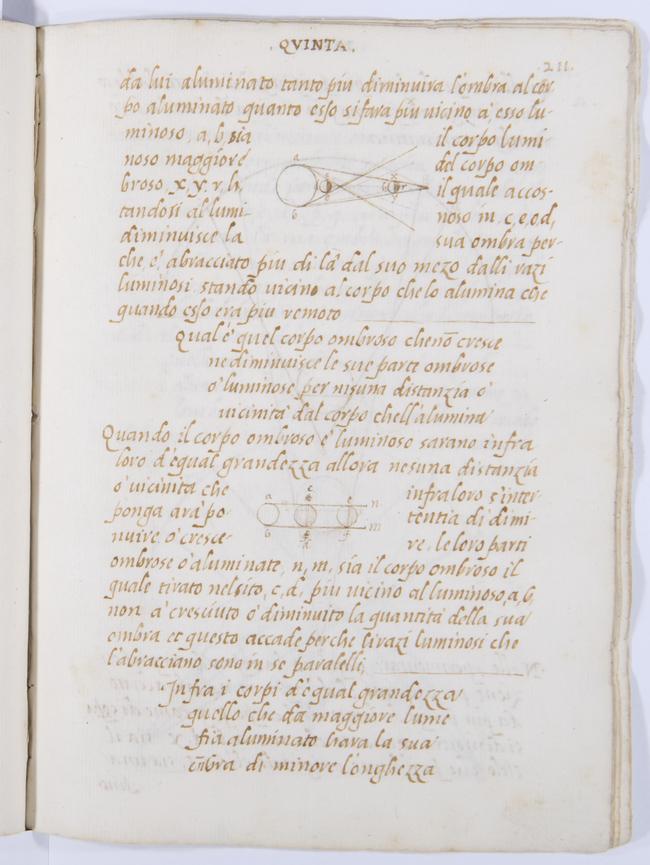 . QVINTA .
211.
da lui aluminato tanto piu diminuira l'ombra al cor
po aluminato quanto esso si fara piu uicino à esso lu-
minoso, a, b, sia il corpo lumi
noso maggiore del corpo om-
broso, x, y, r, h, il quale accos-
tandosi al lumi- noso in, c, e, o, d,
diminuisce la sua ombra per-
che, è, abracciato piu di la dal suo mezo dalli razi
luminosi stando uicino al corpo che lo alumina che
quando esso era piu remoto
Qual è quel corpo ombroso che nõ cresce
ne diminuisce le sue parte ombrose
o luminose per nisuna distanzia o
uicinità dal corpo chell'alumina
Quando il corpo ombroso e luminoso sarano infra
loro d'equal grandezza allora nesuna distanzia
o uicinita che infra loro s'inter
ponga arà po- tentia di dimi-
nuire, o cresce- re, le loro parti
ombrose o aluminate, n, m, sia il corpo ombroso il
quale tirato nel sito, c, d, piu uicino al luminoso, a, b,
non a cresciuto o diminuito la quantità della sua
ombra et questo accade perche li razi luminosi che
l'abracciano sono in se paralelli,
Infra i corpi d'equal grandezza
quello che da maggiore lume
fia aluminato hara la sua
õbra di minore longhezza